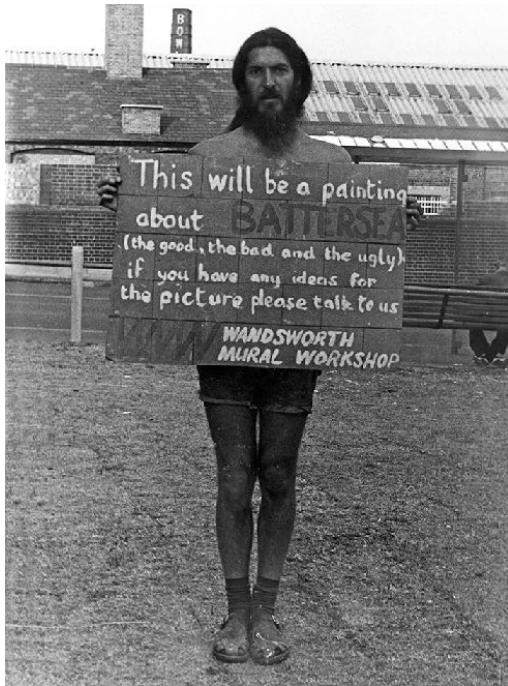 BOW
This will be a painting
about BATTERSEA
(the good, the bad and the ugly).
if you have any ideas for
the picture please talk to us
WANDSWORTH
MURAL WORKSHOP